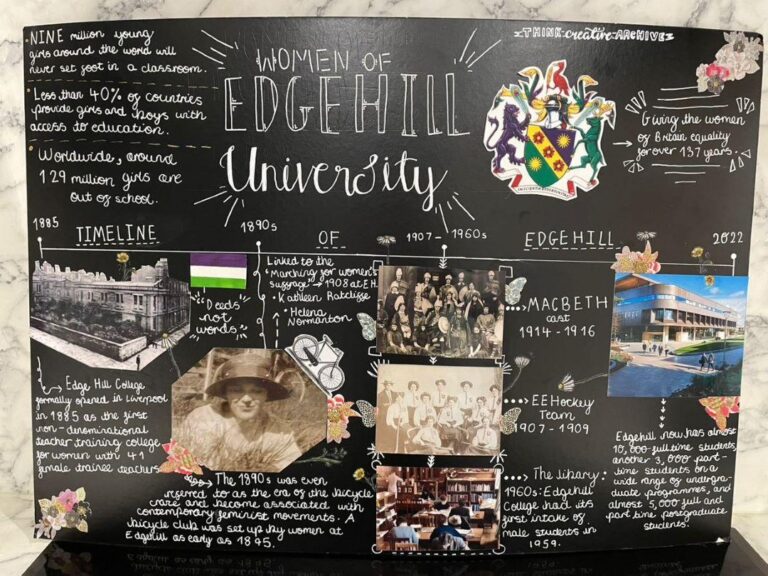 NINE million young
girls around the world will
never set foot in a classroom.
Less than 40% of countries
provide girls and boys with
access to education.
Worldwide, around
129 million girls are
out of school.
WOMEN OF
EDGEHILL
University
THINK creative ARCHIVE
Giving the women
of Britain equality
for over 137 years.
1885
TIMELINE
1890s
OF
1907-
1960s
EDGEHILL
2022
Edge Hill College
formally opened in Liverpool
in 1885 as the first
non-denominational
teacher training college
for women with 41
female trainee teachers
"Deeds
not
words"
Linked to the
Marching for women's
suffrage → 1908 at E.H.
Kathleen Ratcliffe
Helena
Normanton
The 1890s was even
referred to as the era of the bicycle
craze and become associated with
contemporary feminist movements. A
bicycle club was set up by women at
Edgehill as early as 1895.
MACBETH
cast
1914-1916
EEHockey
Team
1907-1909
The library:
1960s: Edgehill
College had its
first intake of
male students in
1959.
Edgehill now has almost
10,000 full time students,
another 3,000 part-
time students on a
wide range of undergra-
duate programmes, and
almost 5,000 full and
part time postgraduate
students.